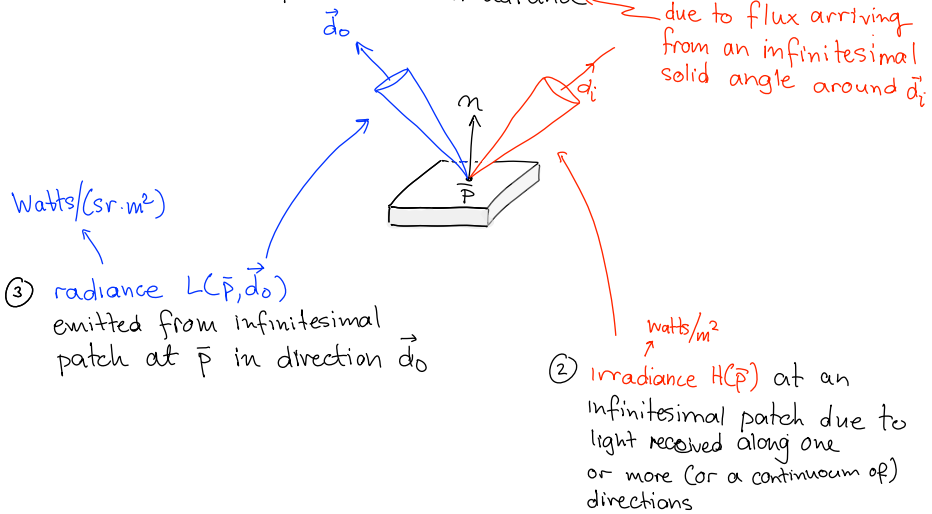 due to flux arriving
from an infinitesimal
solid angle around d⃗i
d⃗o
d⃗i
n
p̄
Watts/(sr·m²)
③ radiance L(p̄, d⃗o)
emitted from infinitesimal
patch at p̄ in direction d⃗o
watts/m²
② irradiance H(p̄) at an
infinitesimal patch due to
light received along one
or more (or a continuoum of)
directions